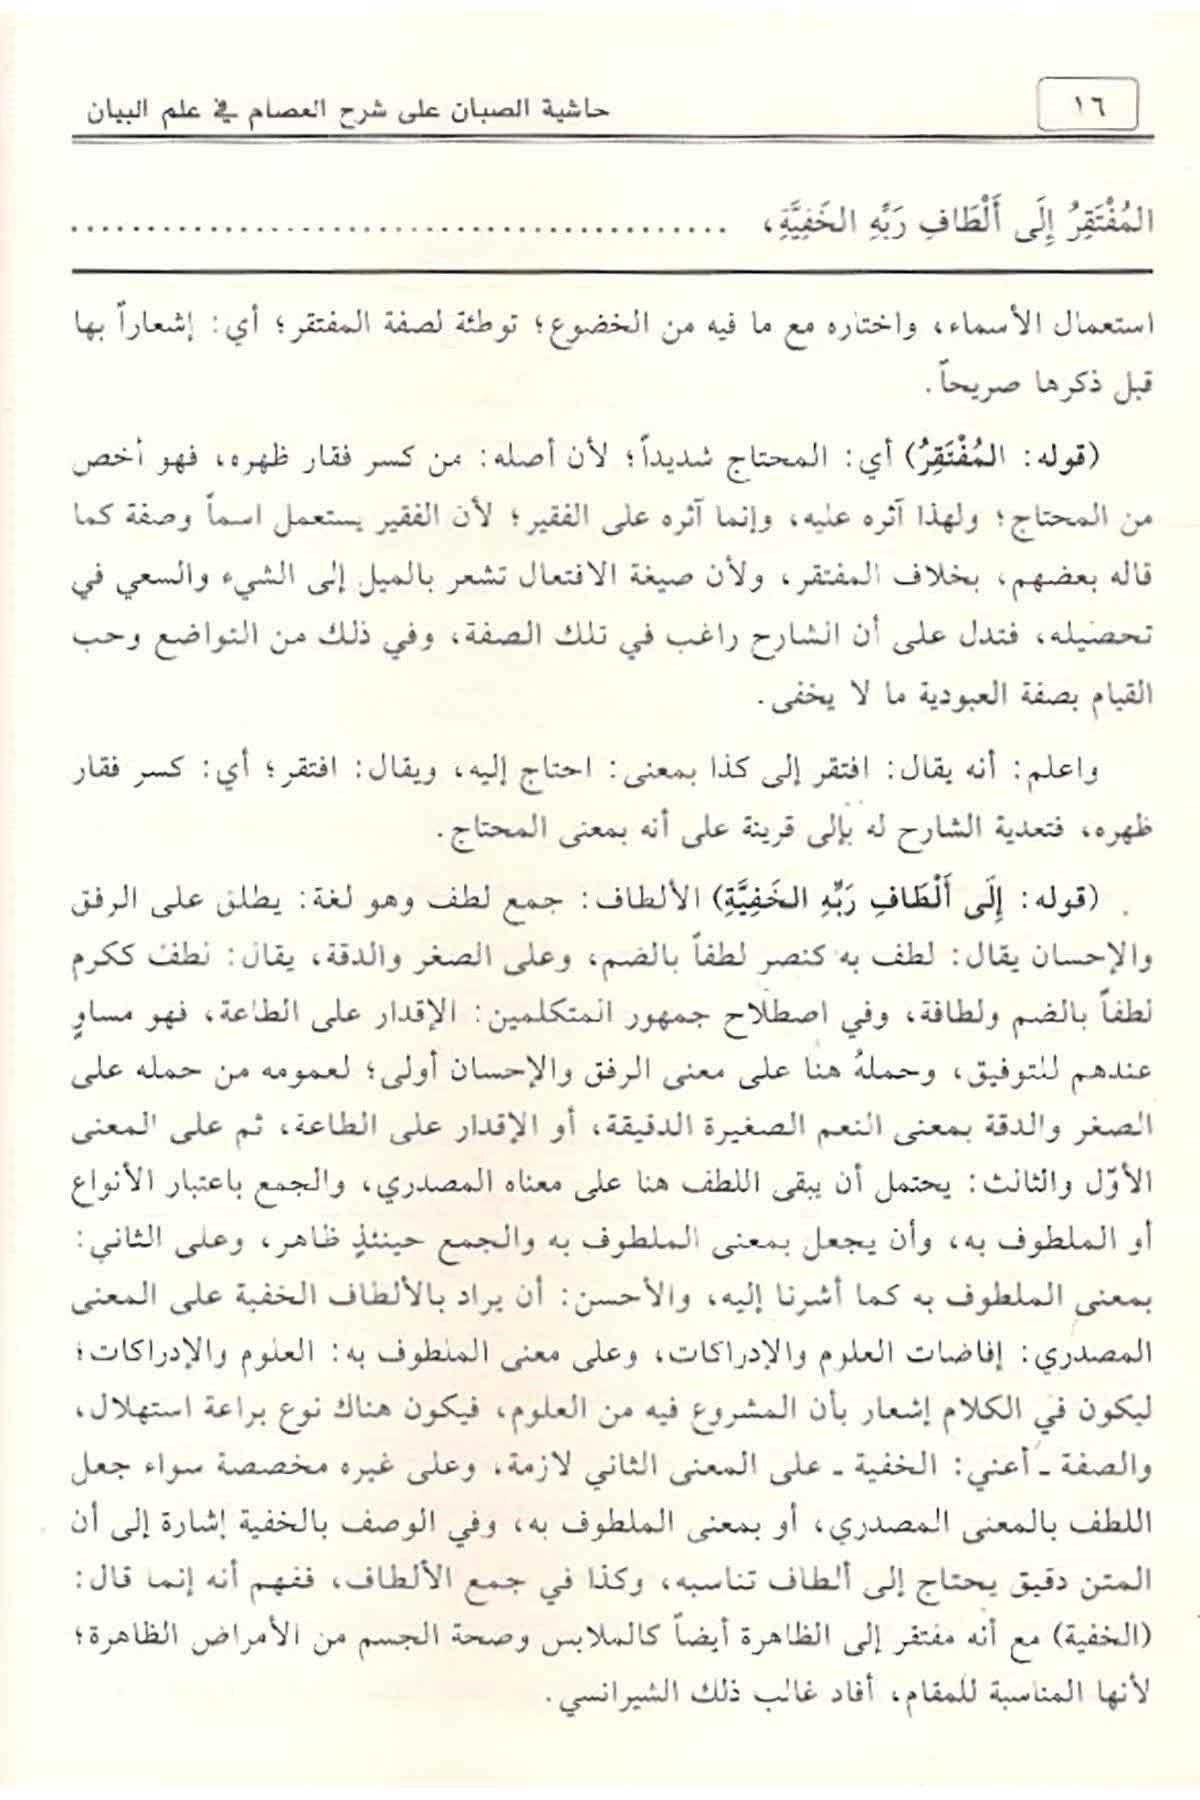 ١٦
حاشية الصبان على شرح العصام في علم البيان
المُفْتَقِرُ إِلَى أَلْطَافِ رَبِّهِ الخَفِيَّةِ، ..........................................
استعمال الأسماء، واختاره مع ما فيه من الخضوع؛ توطئة لصفة المفتقر؛ أي: إشعاراً بها
قبل ذكرها صريحاً.
(قوله: المُفْتَقِرُ) أي: المحتاج شديداً؛ لأن أصله: من كسر فقار ظهره، فهو أخص
من المحتاج؛ ولهذا آثره عليه، وإنما آثره على الفقير؛ لأن الفقير يستعمل اسماً وصفة كما
قاله بعضهم، بخلاف المفتقر، ولأن صيغة الافتعال تشعر بالميل إلى الشيء والسعي في
تحصيله، فتدل على أن الشارح راغب في تلك الصفة، وفي ذلك من التواضع وحب
القيام بصفة العبودية ما لا يخفى.
واعلم: أنه يقال: افتقر إلى كذا بمعنى: احتاج إليه، ويقال: افتقر؛ أي: كسر فقار
ظهره، فتعدية الشارح له بإلى قرينة على أنه بمعنى المحتاج.
(قوله: إِلَى أَلْطَافِ رَبِّهِ الخَفِيَّةِ) الألطاف: جمع لطف وهو لغة: يطلق على الرفق
والإحسان يقال: لطف به كنصر لطفاً بالضم، وعلى الصغر والدقة، يقال: لطف ككرم
لطفاً بالضم ولطافة، وفي اصطلاح جمهور المتكلمين: الإقدار على الطاعة، فهو مساوٍ
عندهم للتوفيق، وحملهُ هنا على معنى الرفق والإحسان أولى؛ لعمومه من حمله على
الصغر والدقة بمعنى النعم الصغيرة الدقيقة، أو الإقدار على الطاعة، ثم على المعنى
الأوّل والثالث: يحتمل أن يبقى اللطف هنا على معناه المصدري، والجمع باعتبار الأنواع
أو الملطوف به، وأن يجعل بمعنى الملطوف به والجمع حينئذٍ ظاهر، وعلى الثاني:
بمعنى الملطوف به كما أشرنا إليه، والأحسن: أن يراد بالألطاف الخفية على المعنى
المصدري: إفاضات العلوم والإدراكات، وعلى معنى الملطوف به: العلوم والإدراكات؛
ليكون في الكلام إشعار بأن المشروع فيه من العلوم، فيكون هناك نوع براعة استهلال،
والصفة - أعني: الخفية - على المعنى الثاني لازمة، وعلى غيره مخصصة سواء جعل
اللطف بالمعنى المصدري، أو بمعنى الملطوف به، وفي الوصف بالخفية إشارة إلى أن
المتن دقيق يحتاج إلى ألطاف تناسبه، وكذا في جمع الألطاف، ففهم أنه إنما قال:
(الخفية) مع أنه مفتقر إلى الظاهرة أيضاً كالملابس وصحة الجسم من الأمراض الظاهرة؛
لأنها المناسبة للمقام، أفاد غالب ذلك الشيرانسي.